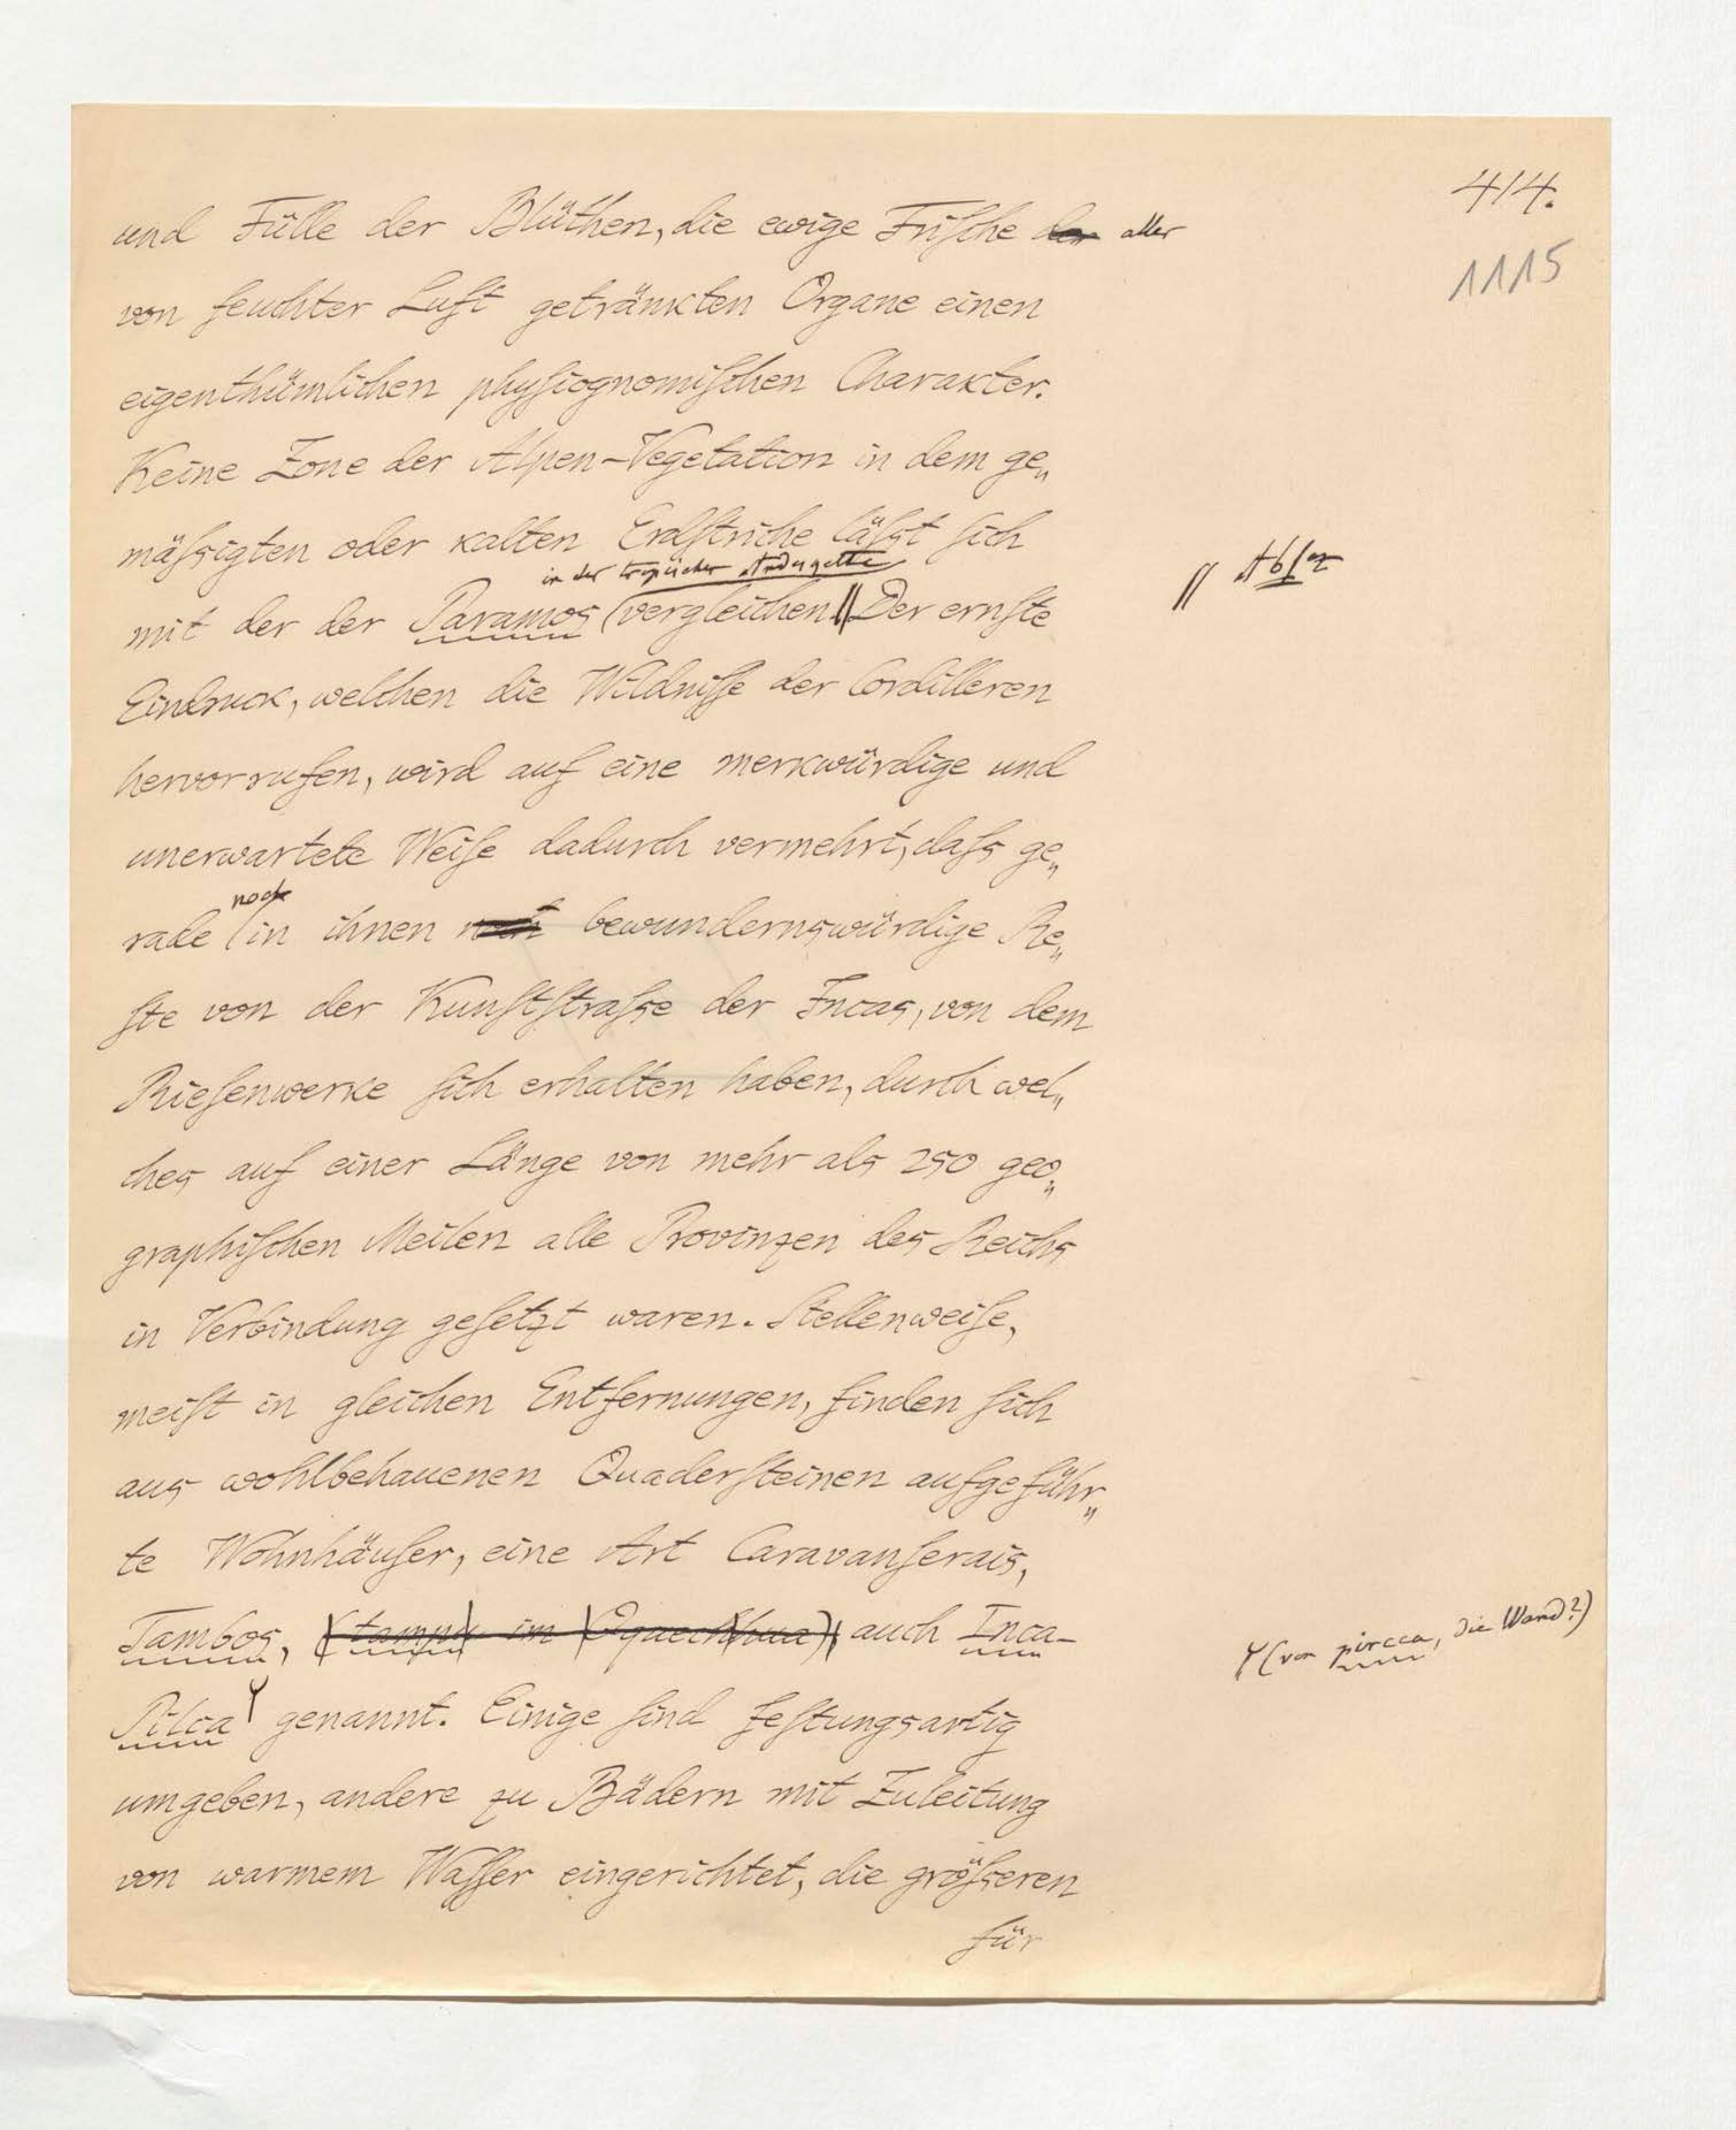 414.
1115
und Fülle der Blüthen, die ewige Friſche der aller
von feuchter Luft getränkten Organe einen
eigenthümlichen phyſiognomiſchen Charakter.
Keine Zone der Alpen-Vegetation in dem ge„
mäſsigten oder kalten Erdſtriche läſst ſich
in der tropischen Andeskette
mit der der Paramos vergleichen. || Der ernſte
|| Absz
Eindruck, welchen die Wildniſſe der Cordilleren
hervorrufen, wird auf eine merkwürdige und
unerwartete Weiſe dadurch vermehrt, daſs ge„
noch
rade in ihnen noch bewundernswürdige Re„
ſte von der Kunſtſtraſse der Incas, von dem
Rieſenwerke ſich erhalten haben, durch wel„
ches auf einer Länge von mehr als 250 geo„
graphiſchen Meilen alle Provinzen des Reichs
in Verbindung geſetzt waren. Stellenweiſe,
meiſt in gleichen Entfernungen, finden ſich
aus wohlbehauenen Quaderſteinen aufgeführ„
te Wohnhäuſer, eine Art Caravanſerais,
Tambos, (tampu im Qquechhua), auch Inca-
(von pircca, die Wand?)
Pilca genannt. Einige ſind feſtungsartig
umgeben, andere zu Bädern mit Zuleitung
von warmem Waſſer eingerichtet, die gröſseren
für